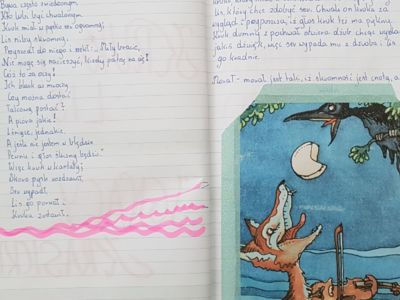 Bywa często zwiedzionym,
Kto lubi być chwalonym.
Kruk miał w pysku ser ogromny;
Lis niby skromny,
Przyszedł do niego i rzekł: „Miły bracie,
Nie mogę się nacieszyć, kiedy patrzę na cię!
Cóż to za oczy!
Ich blask aż mroczy!
Czy można dostać
Takową postać?
A pióra jakie!
Lśniące, jednakie.
A jeśli nie jestem w błędzie
Pewnie i głos śliczny będzie."
Więc kruk w kantaty;
skoro pysk rozdziawił,
Ser wypadł,
Lis go porwał i
Kruka zostawił.
lis, który chce zdobyć ser. Chwali on kruka za
wygląd i przypuszcza, iż głos kruk też ma piękny.
Kruk dumny z pochwał otwiera dziób chcąc wydać
jakiś dźwięk, więc ser wypada mu z dzioba i lis
go kradnie.
Morał - morał jest taki, iż skromność jest cnotą, a